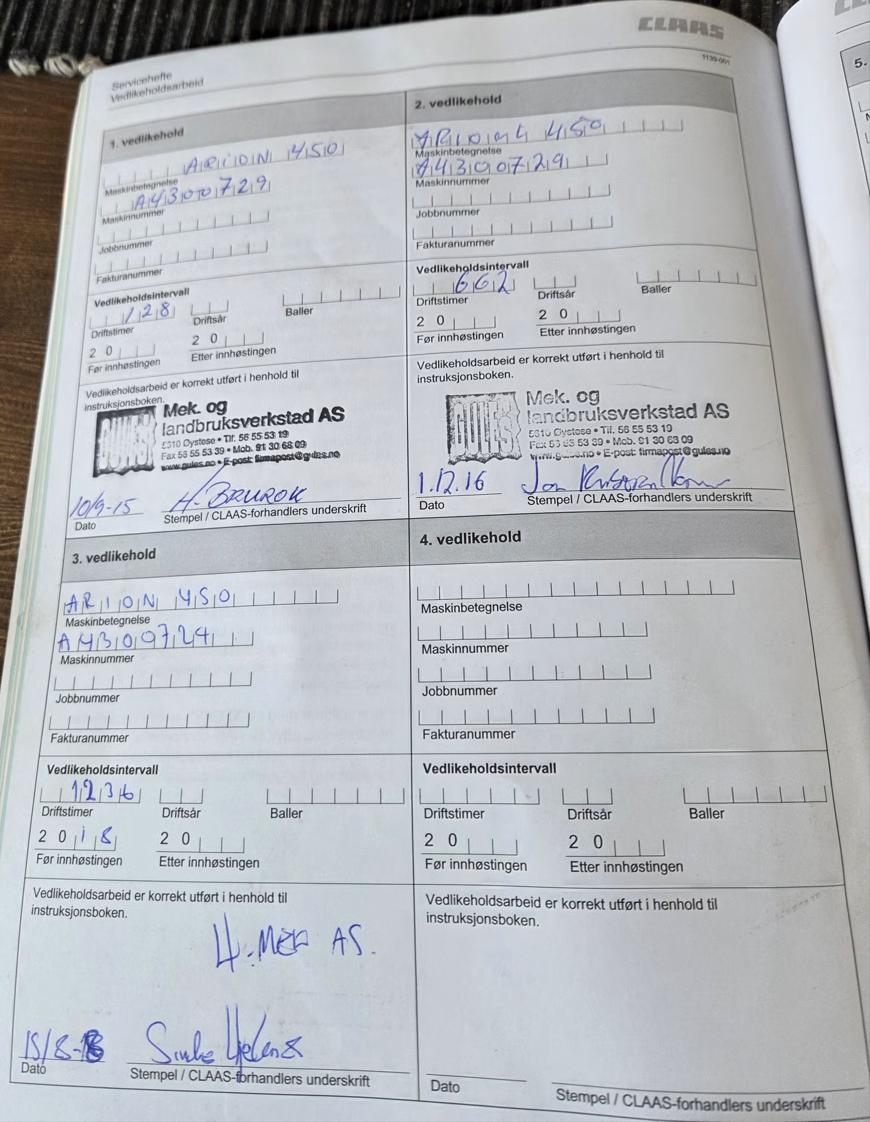 CLAAS
1139-001
Servicehefte
Vedlikeholdsarbeid
1. vedlikehold
ARION 450
Maskinbetegnelse
A4300729
Maskinnummer
Jobbnummer
Fakturanummer
Vedlikeholdsintervall
128
Driftstimer
Driftsår
Baller
20
20
Før innhøstingen
Etter innhøstingen
Vedlikeholdsarbeid er korrekt utført i henhold til
instruksjonsboken.
GULES
Mek. og
landbruksverkstad AS
5610 Øystese • Tlf. 56 55 53 19
Fax 56 55 53 39 • Mob. 91 30 68 09
www.gules.no • E-post: firmapost@gules.no
10/9-15
Dato
Stempel / CLAAS-forhandlers underskrift
2. vedlikehold
450
Maskinbetegnelse
A4300729
Maskinnummer
Jobbnummer
Fakturanummer
Vedlikeholdsintervall
662
Driftstimer
Driftsår
Baller
20
20
Før innhøstingen
Etter innhøstingen
Vedlikeholdsarbeid er korrekt utført i henhold til
instruksjonsboken.
GULES
Mek. og
landbruksverkstad AS
Øystese • Tlf. 56 55 53 19
Fax 53 39 • Mob. 91 30 09
www.gules.no • E-post: firmapost@gules.no
1.12.16
Dato
Stempel / CLAAS-forhandlers underskrift
3. vedlikehold
ARION 450
Maskinbetegnelse
A4309724
Maskinnummer
Jobbnummer
Fakturanummer
Vedlikeholdsintervall
1236
Driftstimer
Driftsår
Baller
2018
20
Før innhøstingen
Etter innhøstingen
Vedlikeholdsarbeid er korrekt utført i henhold til
instruksjonsboken.
H.MEK AS.
15/8-18
Dato
Stempel / CLAAS-forhandlers underskrift
4. vedlikehold
Maskinbetegnelse
Maskinnummer
Jobbnummer
Fakturanummer
Vedlikeholdsintervall
Driftstimer
Driftsår
Baller
20
20
Før innhøstingen
Etter innhøstingen
Vedlikeholdsarbeid er korrekt utført i henhold til
instruksjonsboken.
Dato
Stempel / CLAAS-forhandlers underskrift
5.